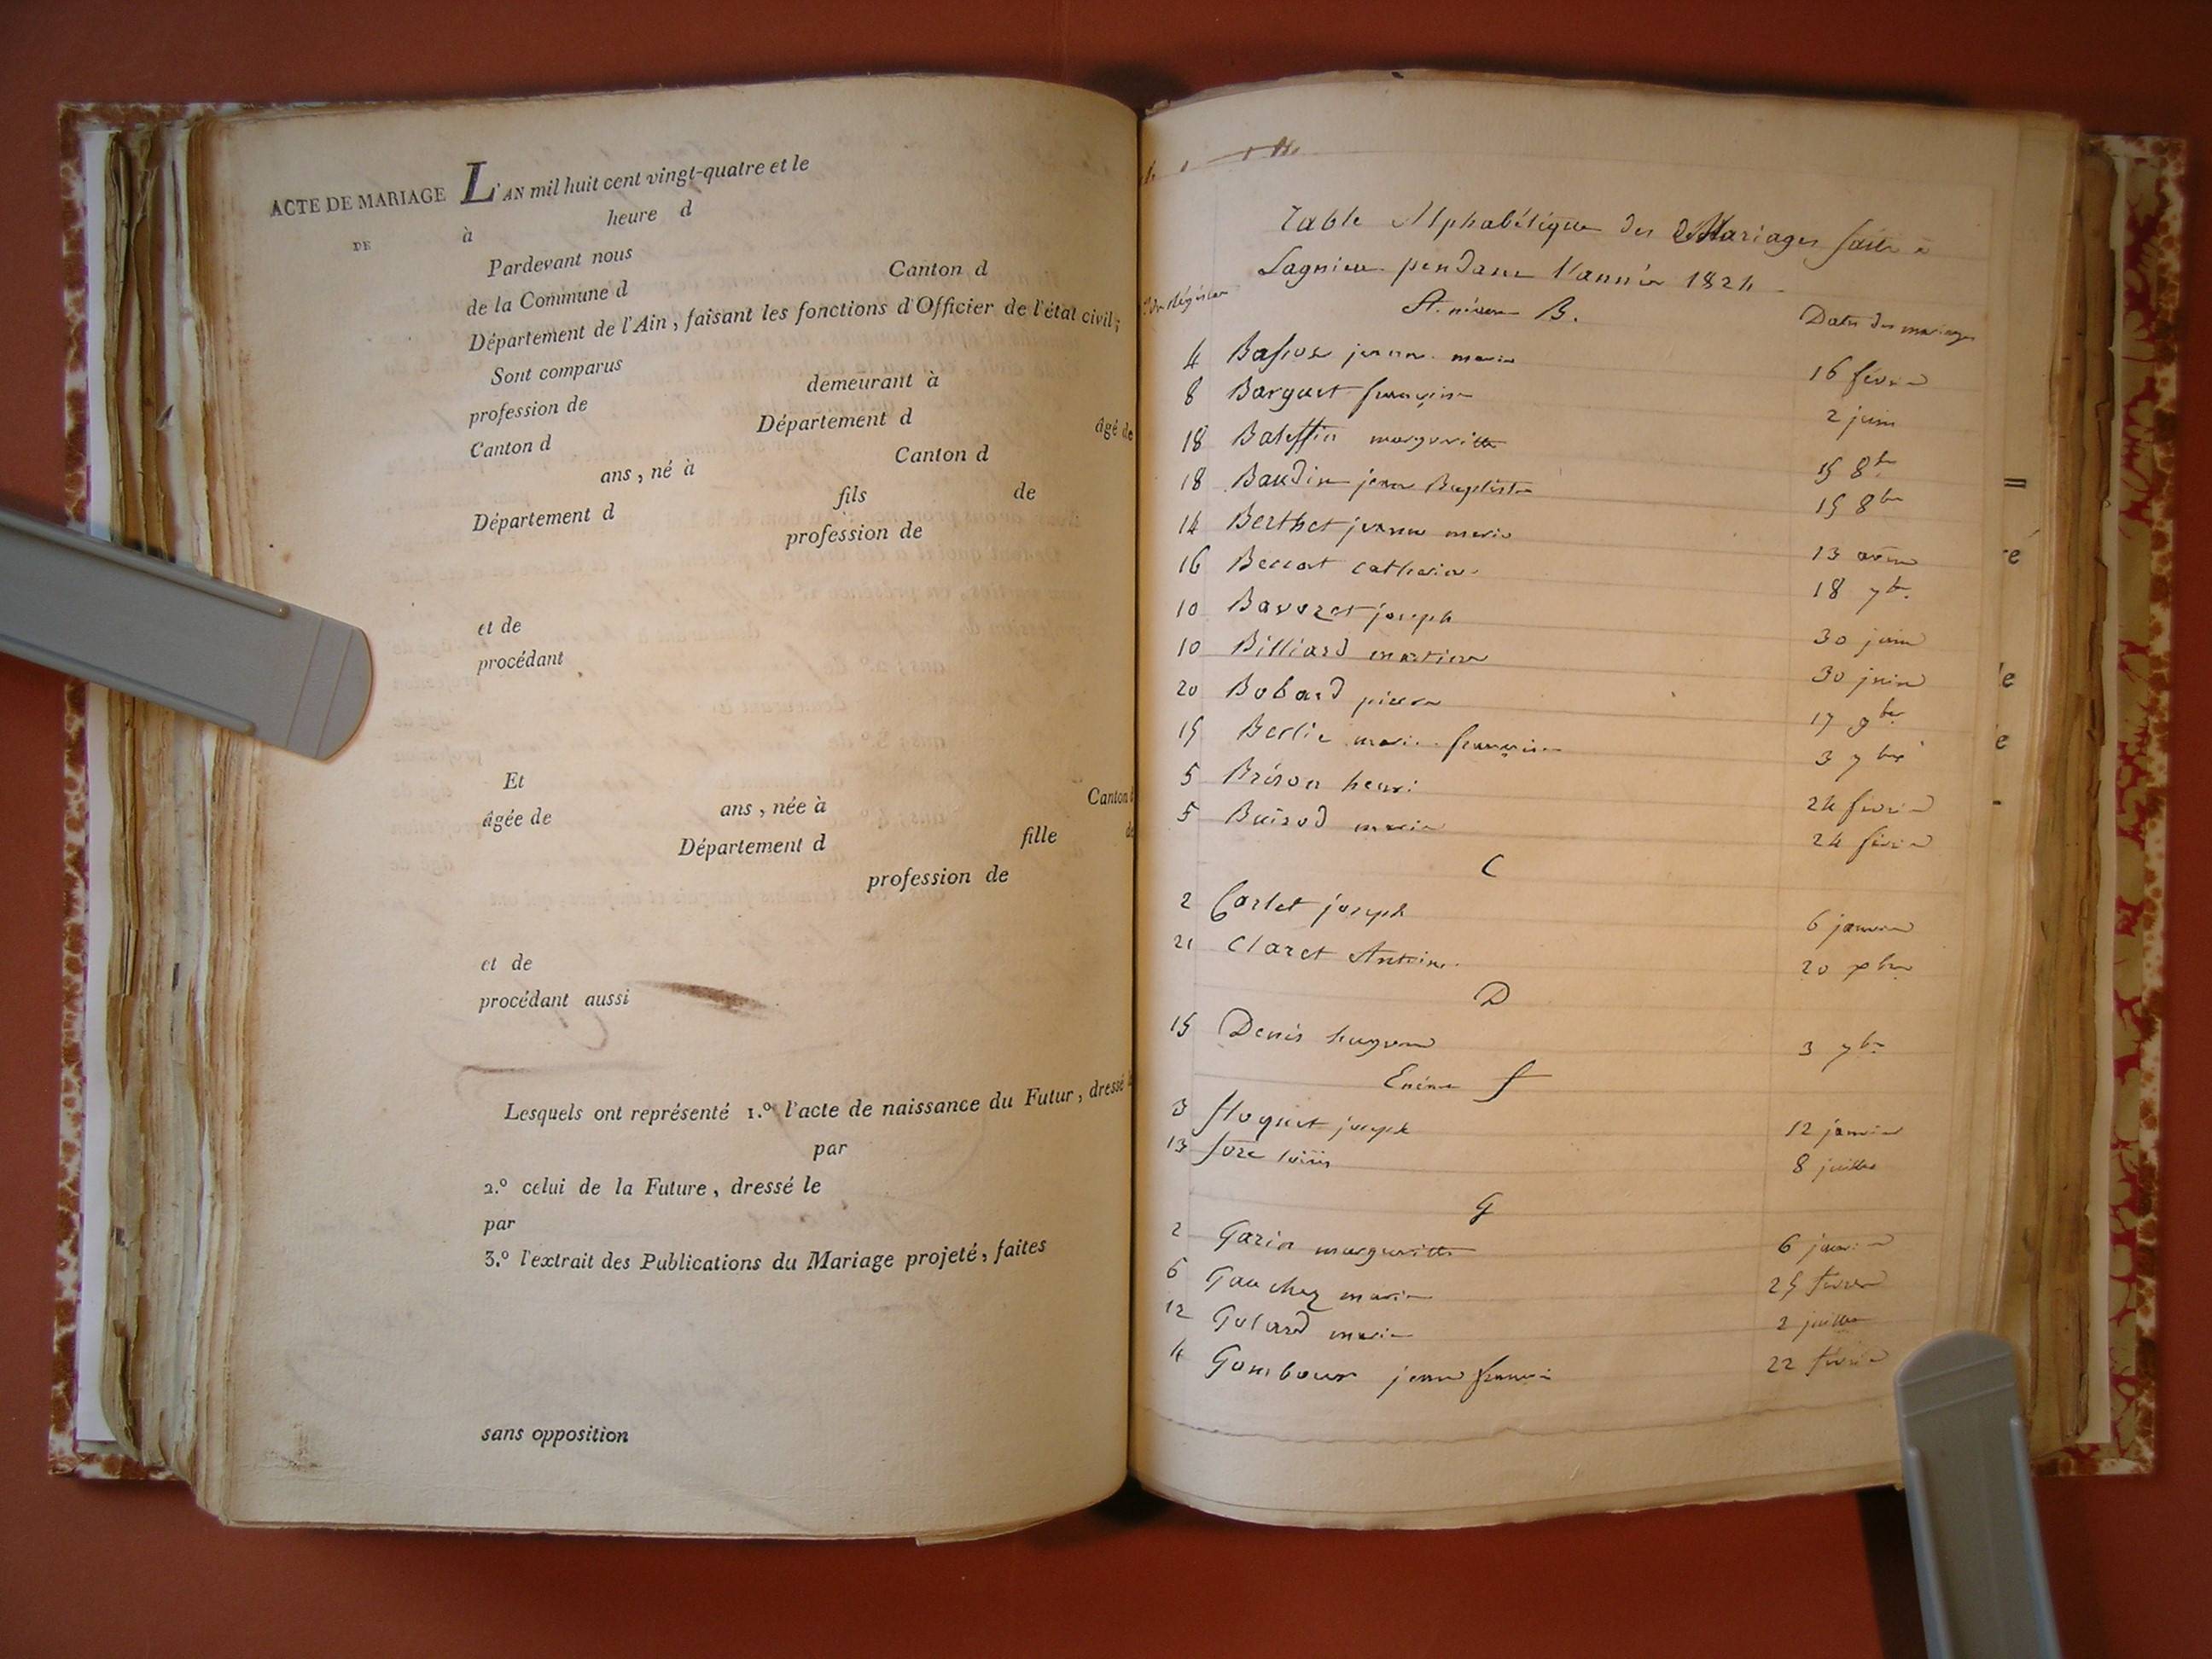 ACTE DE MARIAGE
DE
L'AN mil huit cent vingt-quatre et le
à heure d
Pardevant nous
de la Commune d Canton d
Département de l'Ain, faisant les fonctions d'Officier de l'état civil;
Sont comparus
profession de demeurant à
Canton d Département d âgé de
ans, né à Canton d
Département d fils de
profession de
et de
procédant
Et
âgée de ans, née à Canton d
Département d fille de
profession de
et de
procédant aussi
Lesquels ont représenté 1.º l'acte de naissance du Futur, dressé
par
2.º celui de la Future, dressé le
par
3.º l'extrait des Publications du Mariage projeté, faites
sans opposition
Table Alphabétique des Mariages faits à
Lagnieu pendant l'année 1824
A. néant B. Dates des mariages
4 jeanne marie 16 février
8 Barguet françoise 2 juin
18 marguerite 15 8bre
18 Baudin jean Baptiste 15 8bre
14 Berthet jeanne marie 13 aout
16 catherine 18 7bre
10 Bavozet joseph 30 juin
10 Billiard 30 juin
20 Bobard pierre 17 9bre
15 Berlie marie françoise 3 7bre
5 henri 24 février
5 Buirod marie 24 février
C
2 Carlet joseph 6 janvier
21 Claret Antoine 20 xbre
D
15 Denis hugues 3 7bre
E néant f
3 floquet joseph 12 janvier
13 louis 8 juillet
G
2 Garin marguerite 6 janvier
6 Gauchez marie 25 février
12 Golard marie 2 juillet
4 jean françois 22 février